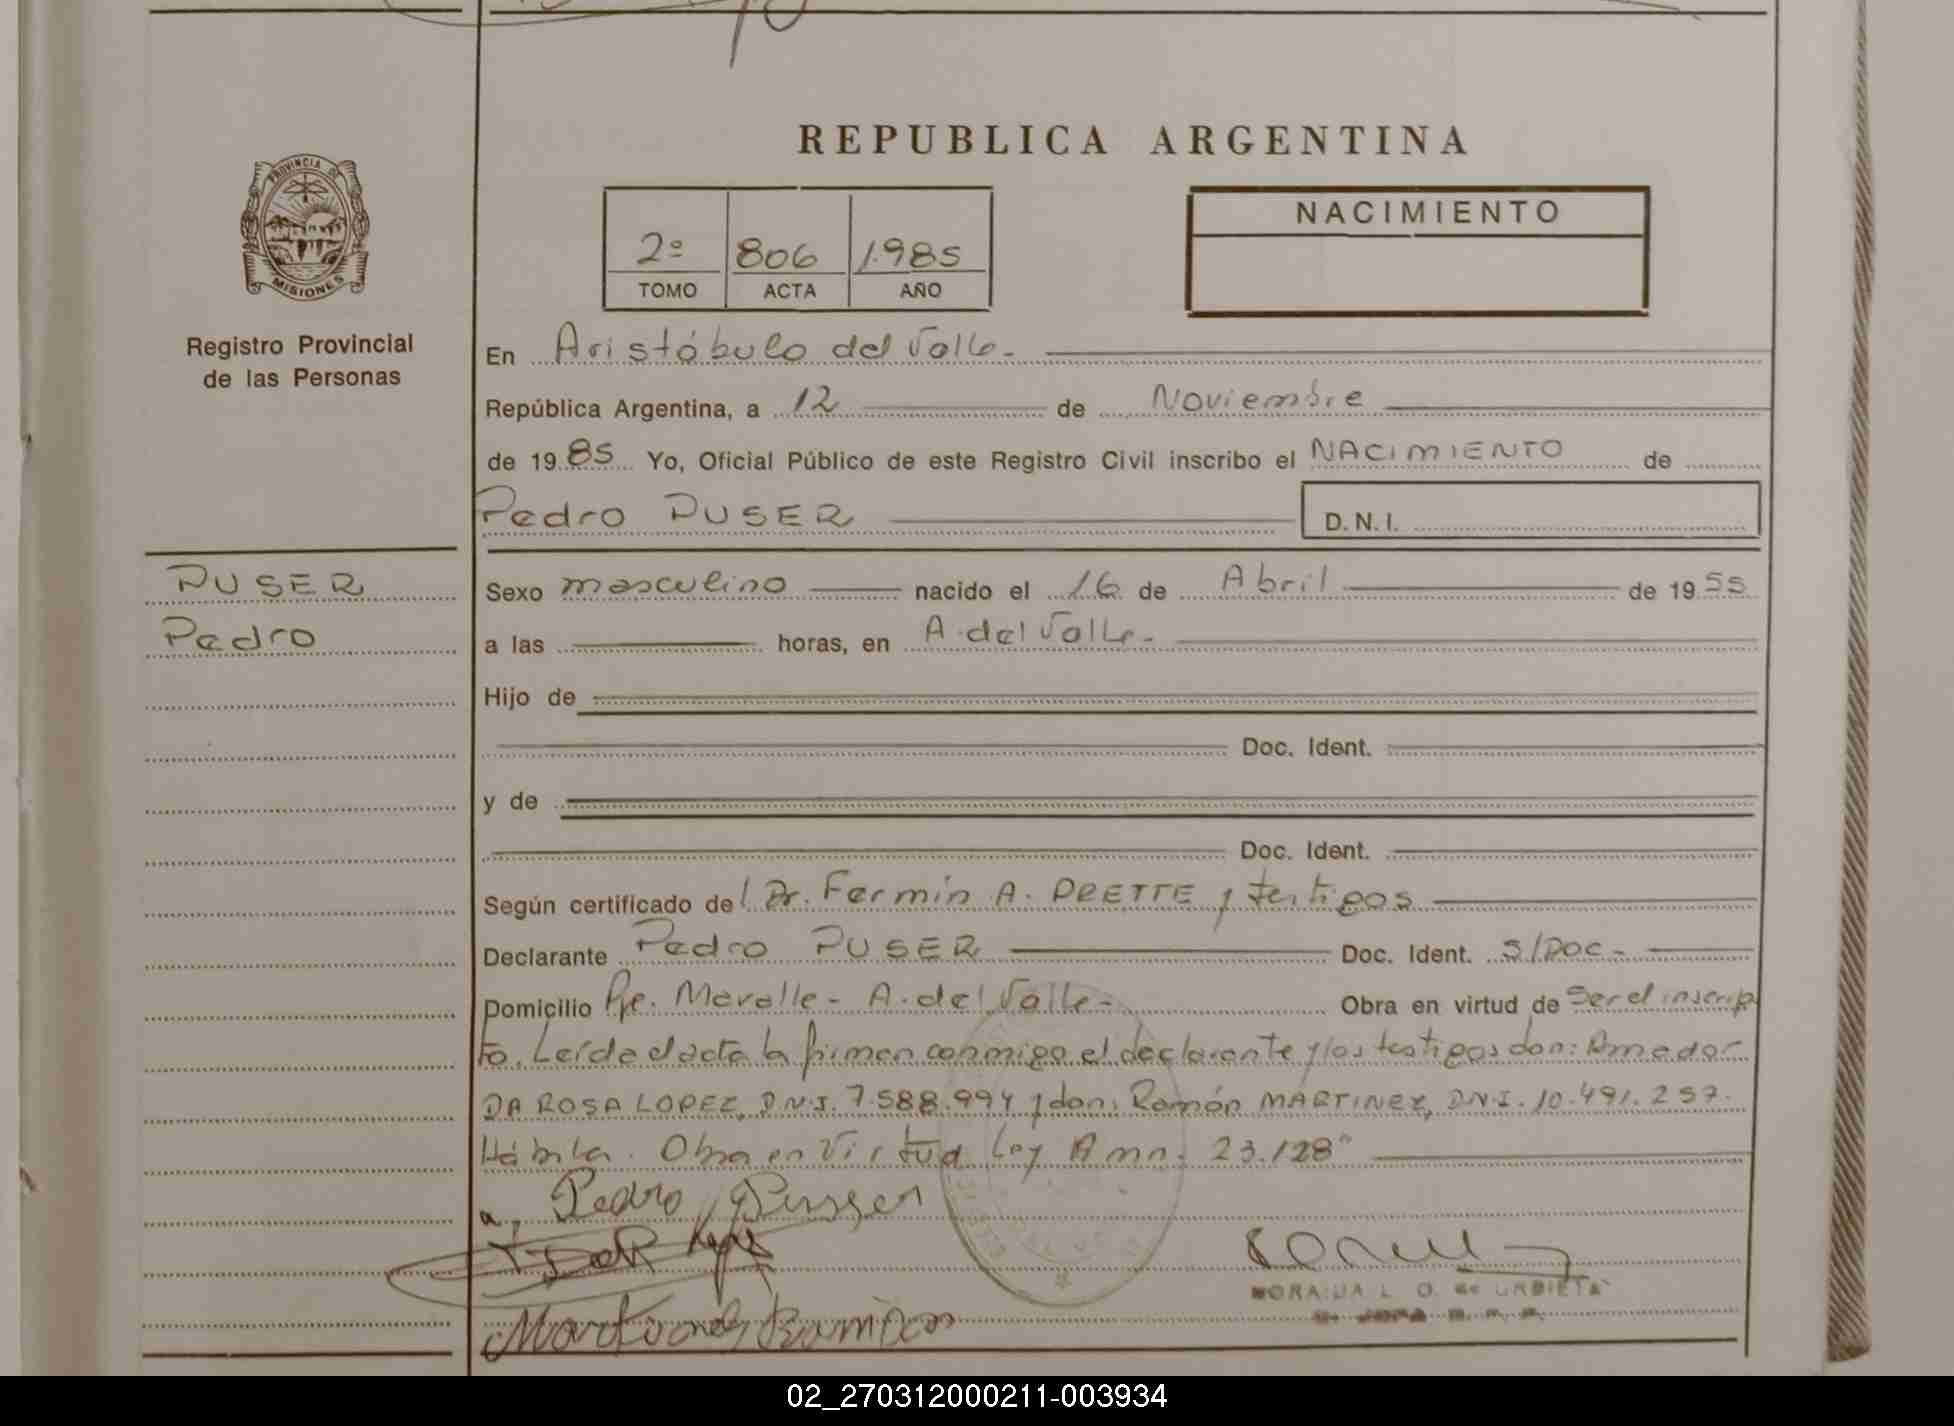 REPUBLICA ARGENTINA
PROVINCIA DE
MISIONES
Registro Provincial
de las Personas
2º 806 1.985
TOMO ACTA AÑO
NACIMIENTO
En Aristóbulo del Valle.-
República Argentina, a 12 de Noviembre
de 1985 Yo, Oficial Público de este Registro Civil inscribo el NACIMIENTO de
Pedro PUSER D.N.I.
PUSER
Pedro
Sexo masculino nacido el 16 de Abril de 1955
a las horas, en A. del Valle.-
Hijo de
Doc. Ident.
y de
Doc. Ident.
Según certificado del Dr. Fermín A. PRETTE y testigos
Declarante Pedro PUSER Doc. Ident. S/DOC-
Domicilio Pje. - A. del Valle- Obra en virtud de Ser el inscrip
to. Leída el acta la firman conmigo el declarante y los testigos don: Amador
DA ROSA LOPEZ, D.N.I. 7.588.994 y don: Ramón MARTINEZ, D.N.I. 10.491.257.
Obra en Virtud Ley Amn. 23.128"
Pedro Pusser
Martinez Ramon
NORAIDA L. O. de URBIETA
02_270312000211-003934